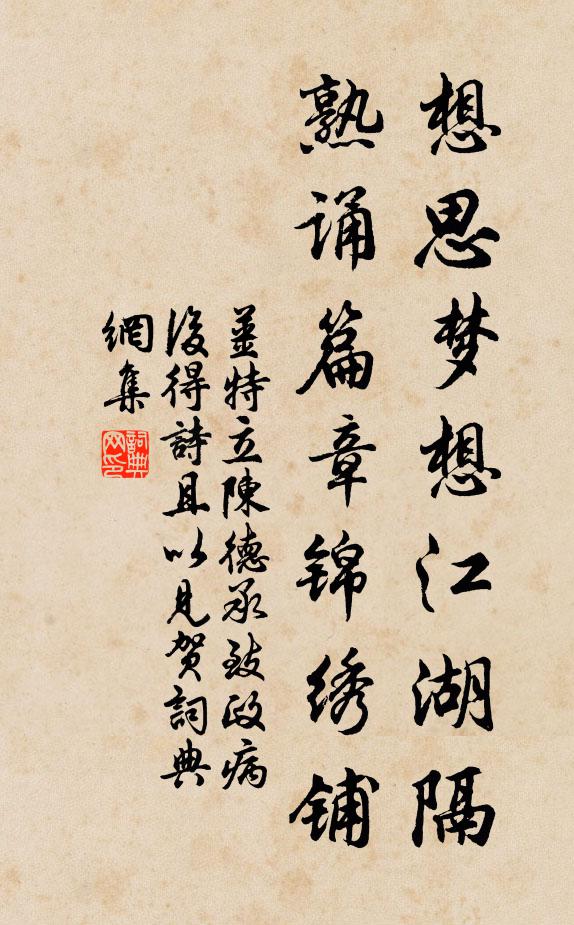 想思梦想江湖隔
熟诵篇章锦绣铺
薑特立陳德承致政病
後得詩且以見賀詞典
網集
詞典网印